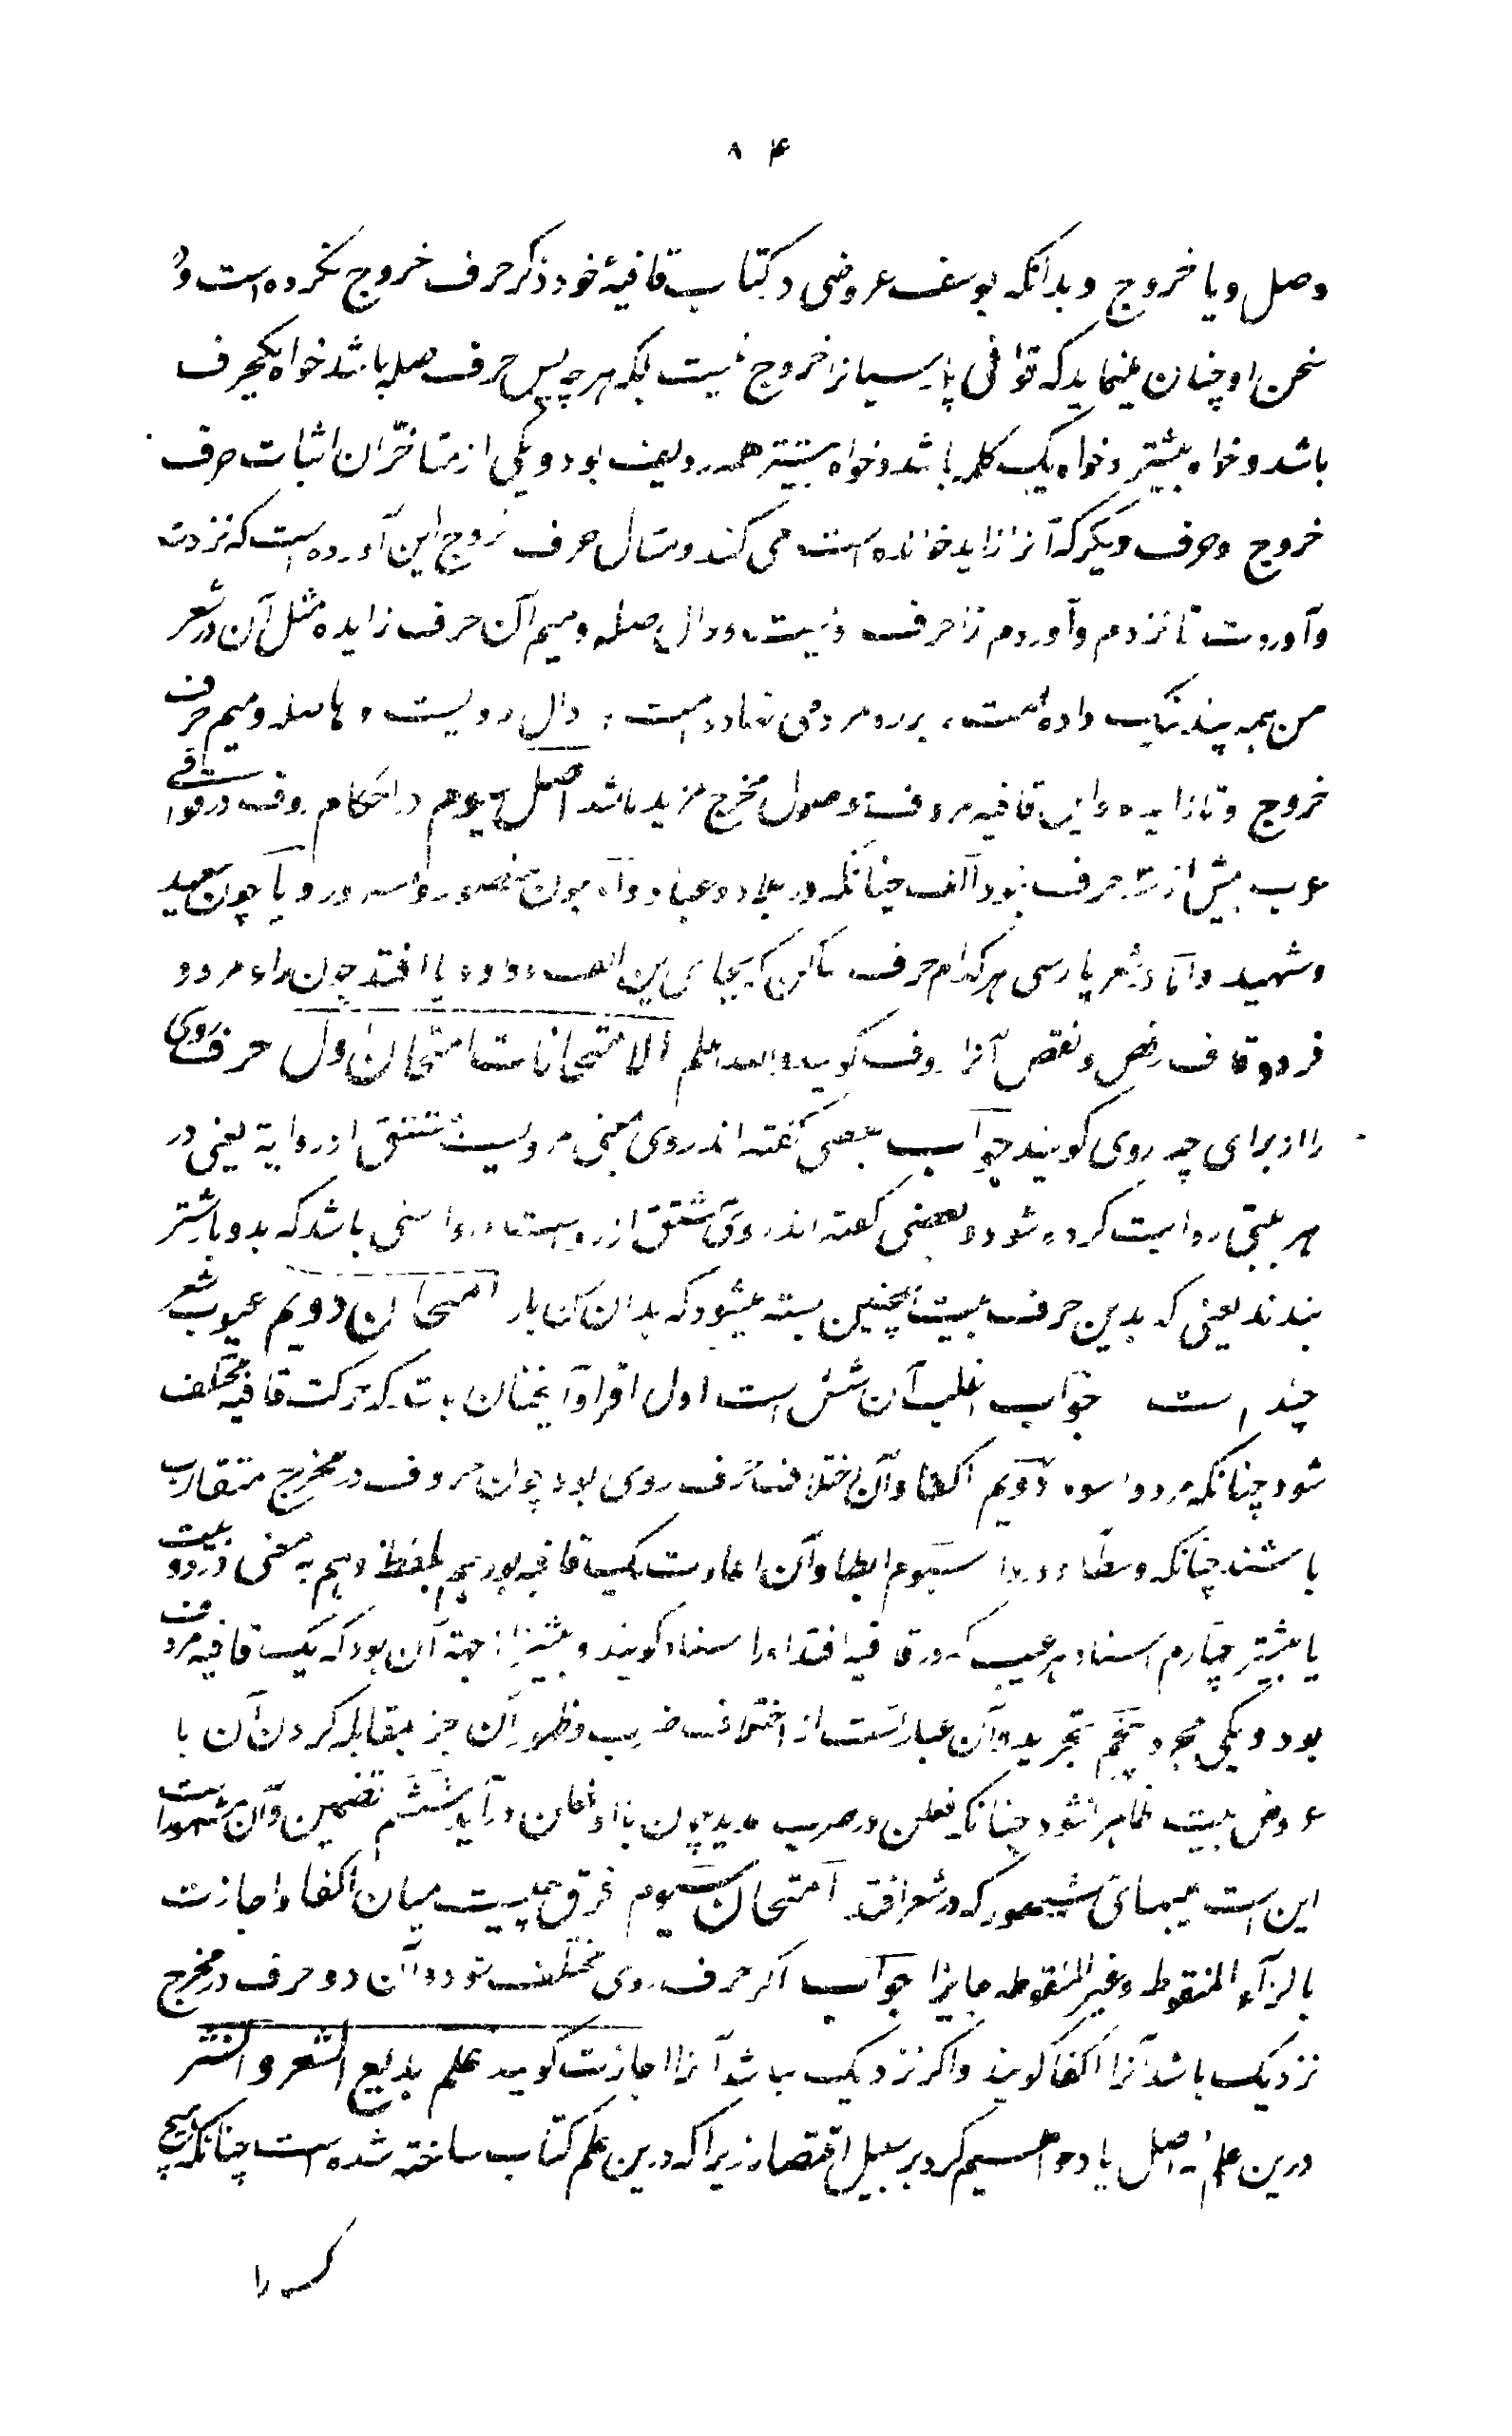 ۸۴
وصل و یا خروج و بدانکه یوسف عروضی در کتاب قافیهٔ خود ذکر حرف خروج نکرده است و
سخن او چنان مینماید که قوافی پارسیانرا خروج نیست بلکه هرچه پس حرف صله باشد خواه یکحرف
باشد و خواه بیشتر و خواه یک کلمه باشد و خواه بیشتر همه ردیف بود و یکی از متاخران اثبات حرف
خروج و حرف دیگر که آنرا زاید خوانده است می کند و مثال حرف خروج این آورده است که نزدت
وآوردت تا نزدم وآوردم را حرف و دال صله و میم آن حرف زایده مثل آن در شعر
من همه پند نیک داده است، بر ره مردمی نهاده است، دال رویست و ها صله و میم حرف
خروج و تا زایده و این قافیه مردف موصول مخرج مزید باشد اصل سیوم در احکام ردف در قوافی
عرب بیش از سه حرف نبود الف چنانکه در بلاد و عباد و واو چون منصور و مسرور و یا چون سعید
و شهید و اما در شعر پارسی هر کدام حرف ساکن که بجای این الف و واو و یا افتد چون راء مرد و
فرد و قاف رقص و نقص آنرا ردف گویند والله اعلم الامتحانات امتحان اول حرف روی
را از برای چه روی گویند جواب بعضی گفته اند روی بمعنی مرویست مشتق از روایة یعنی در
هر بیتی روایت کرده شود و بعضی گفته اند روی مشتق از رواست و روا رسنی باشد که بدو بار شتر
بندند یعنی که بدین حرف بیت همچنین بسته میشود که بدان رسن بار امتحان دویم عیوب شعر
چند است جواب اغلب آن شش است اول اقوا و آنچنان است که حرکت قافیه مختلف
شود چنانکه دویم اکفا و آن اختلاف حرف روی بود چون حروف در مخرج متقارب
باشند چنانکه سیوم ایطا و آن اعادت یک قافیه بود هم بلفظ و هم به معنی در دو بیت
یا بیشتر چهارم سناد هر عیب که در قافیه افتد او را سناد گویند و بیشتر از جهة آن بود که یک قافیه مردف
بود و یکی مجرد پنجم تجرید و آن عبارتست از اختلاف ضرب و ظهور آن جز بمقابله کردن آن با
عروض بیت ظاهر نشود چنانکه فعلن در ضرب مدید چون با فاعلن در آید ششم تضمین و آن مشهور است
این است عیبهائی مشهور که در شعر افتد امتحان سیوم فرق چیست میان اکفا و اجازت
بالزاء المنقوطه و غیر المنقوطه جایزا جواب اگر حرف روی مختلف شود و آن دو حرف در مخرج
نزدیک باشد آنرا اکفا گویند و اگر نزدیک نباشد آنرا اجازت گویند علم بدیع الشعر و النثر
درین علم نه اصل یاد خواهیم کرد بر سبیل اقتصار زیرا که درین علم کتاب ساخته شده است چنانکه هیچ
کس را